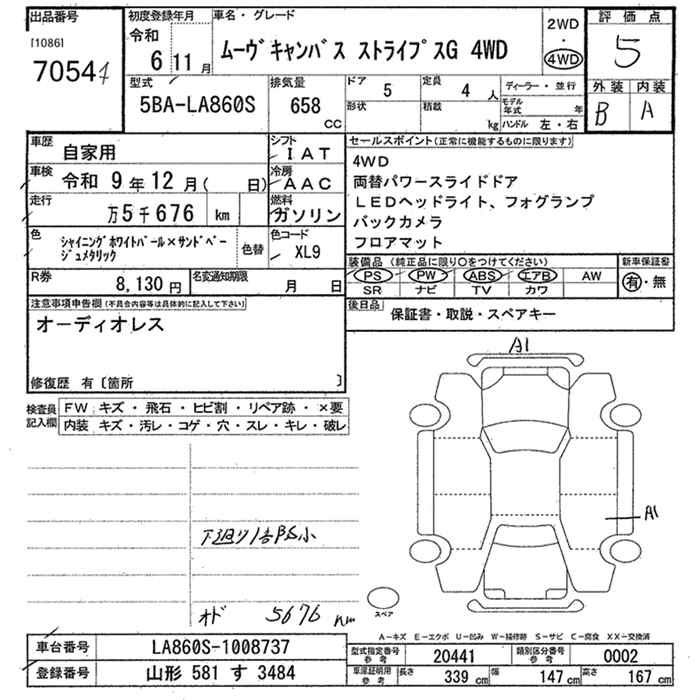 出品番号
[1086]
70544
初度登録年月
令和
6 11月
車名・グレード
ムーヴキャンバス ストライプスG 4WD
2WD
・
4WD
評価点
5
外装 内装
B A
型式
5BA-LA860S
排気量
658
CC
ドア 5
形状
定員 4 人
積載 kg
ディーラー・並行
モデル年式 年
ハンドル 左・右
車歴 自家用
シフト IAT
車検 令和 9年12月( 日)
冷房 AAC
走行 万5千676 km
燃料 ガソリン
色 シャイニングホワイトパール×サンドベージュメタリック
色替
色コード XL9
R券 8,130円
名変通知期限 月 日
セールスポイント(正常に機能するものに限ります)
4WD
両替パワースライドドア
LEDヘッドライト、フォグランプ
バックカメラ
フロアマット
装備品(純正品に限り○をつけてください)
PS PW ABS エアB AW
SR ナビ TV カワ
新車保証書
有・無
後日品 保証書・取説・スペアキー
注意事項申告欄(不具合内容等は具体的に記入して下さい)
オーディオレス
修復歴 有〔箇所 〕
検査員記入欄
FW キズ・飛石・ヒビ割・リペア跡・×要
内装 キズ・汚レ・コゲ・穴・スレ・キレ・破レ
下廻り
オド 5676 km
A1
A1
スペア
A-キズ E-エクボ U-凹み W-補修跡 S-サビ C-腐食 XX-交換済
車台番号 LA860S-1008737
登録番号 山形 581 す 3484
型式指定番号 参考 20441
類別区分番号 参考 0002
車庫証明用 参考 長さ 339 cm 幅 147 cm 高さ 167 cm